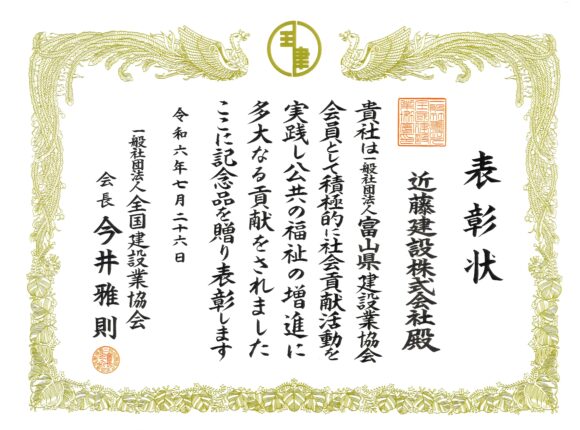 表彰状
近藤建設株式会社殿
貴社は一般社団法人富山県建設業協会
会員として積極的に社会貢献活動を
実践し公共の福祉の増進に
多大なる貢献をされました
ここに記念品を贈り表彰します
令和六年七月二十六日
一般社団法人全国建設業協会
会長 今井雅則